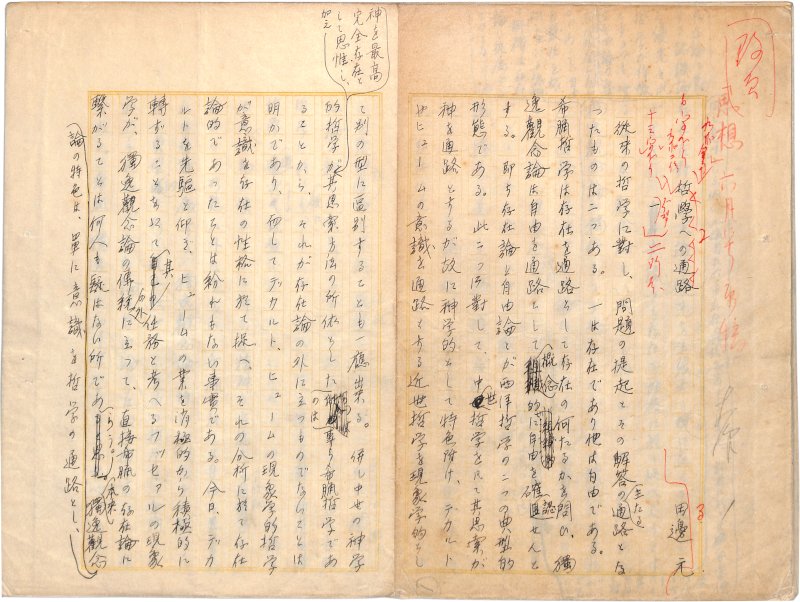 哲學への通路
田邊 元
從來の哲學に對し、問題の提起とその解答の主たる通路とな
つたものは二つある。一は存在であり他は自由である。
希臘哲學は存在を通路として存在の何たるかを問ひ、獨
逸觀念論は自由を通路として概念的に自由を確認せんと
する。即ち存在論と自由論とが西洋哲學の二つの典型的
形態である。此二つに對して、中世哲學を以て其思索が
神を通路とするが故に神学的として特色附け、デカルト
やヒュームの意識を通路とする近世哲學を現象学的とし
て別の型に區別することも一應出來る。併し中世の神学
的哲学が神を最高
完全存在と
して思惟し、
其思索方法の所依としたのは希臘哲学であ
ることから、それが存在論の外に立つものでないことは
明かであり、而してデカルト、ヒュームの現象学的哲学
が意識を存在の性格に於て捉へ、それの分析に於て存在
論的であつたことは紛れもない事實である。今日、デカ
ルトを先驅と仰ぎ、ヒュームの業を消極的から積極的に
轉ずることを以て其任務と考へるフッセアルの現象
学が、獨逸觀念論の傳統に立つて、直接希臘の存在論に
繋がることは何人も疑はない所であらう。獨逸觀念
論の特色は、單に意識を哲学の通路とし、